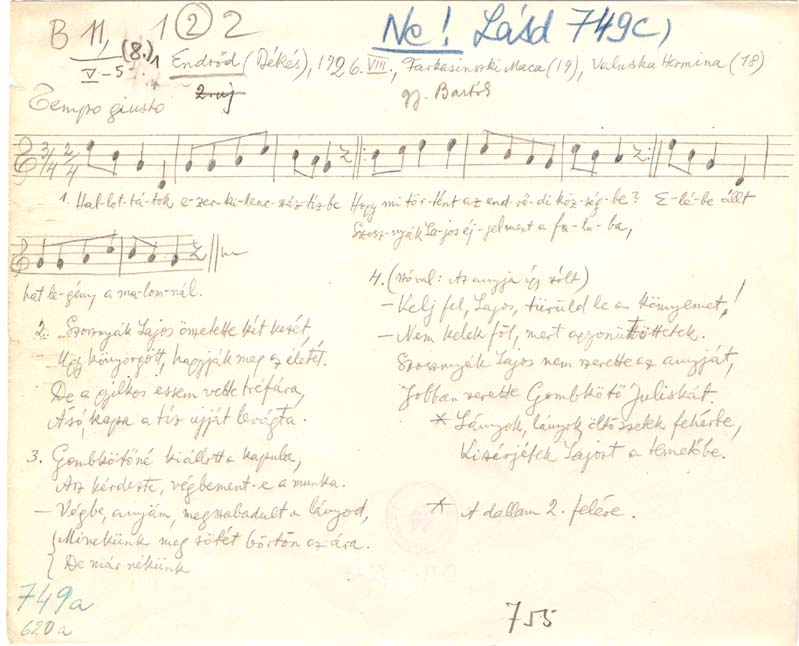 B 11, 1 ② 2 Ne! Lásd 749c)
V.-5 (8.)1 Endrőd (Békés), 1926. VIII., Farkasinszki Maca (19), Valuska Hermina (18)
2. uj gy. Bartók
Tempo giusto
3/4 2/4
1. Hal-lot-tá-tok e-zer-ki-lenc-száz-tizbe Hogy mi tör-tént az end-rő-di köz-ség-be? E-lé-be állt
Szosz-nyák La-jos éj-jel ment a fa-lu-ba,
hat le-gény a ma-lom-nál.
2. Szosznyák Lajos összetette két kezét,
Ugy könyörgött, hagyják meg az életét.
De a gyilkos essem vette tréfára,
Ásó, kapa a tíz ujját levágta.
3. Gombkötőné kiállott a kapuba,
Azt kérdezte, végbement-e a munka.
– Végbe, anyám, megszabadult a lányod,
Minekünk meg sötét börtön az ára.
De már nékünk
4. (szóval: Az anyja így szólt)
– Kelj fel, Lajos, türüld le a könyemet!
– Nem kelek föl, mert agyonütöttetek.
Szosznyák Lajos nem szerette az anyját,
Jobban szerette Gombkötő Juliskát.
* Lányok, lányok öltözzetek fehérbe,
Kisérjétek Lajost a temetőbe.
* A dallam 2. felére.
749a
620a
755